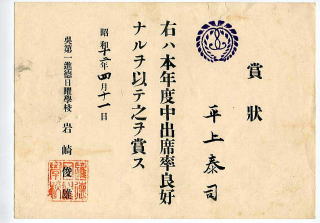 賞狀
平上泰司
右ハ本年度中出席率良好
ナルヲ以テ之ヲ賞ス
昭和十二年四月十一日
吳第一進德日曜學校
岩崎俊雄